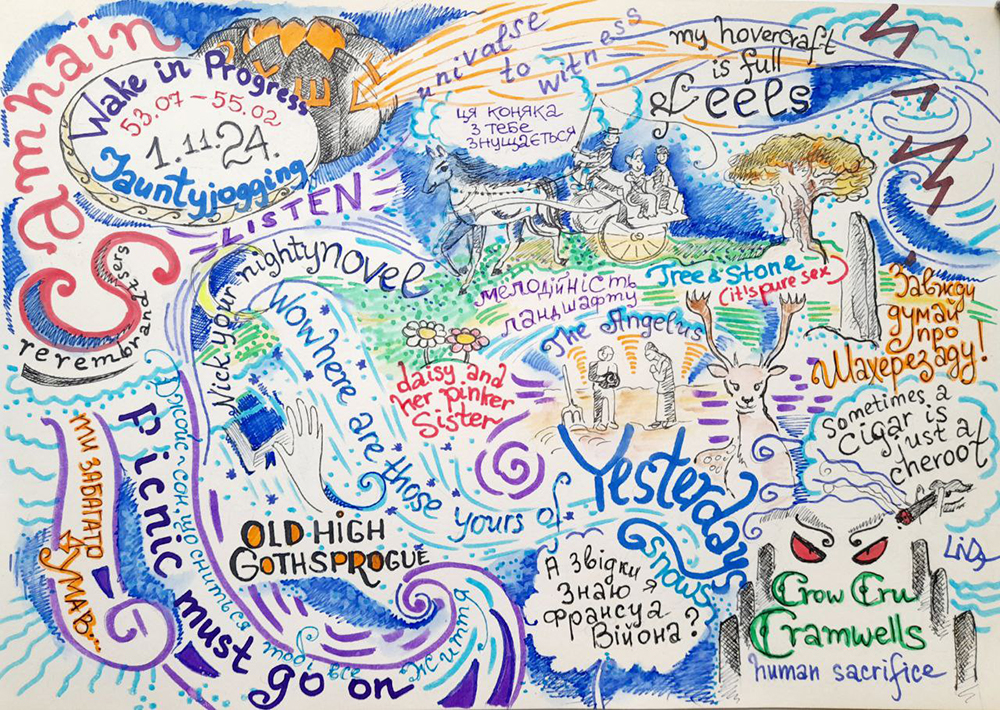 Samhain
Wake in Progress
53.07 – 55.02
1.11.24.
Jauntyjogging
univalse
to
witness
my hovercraft
is full
of eels
ця коняка
з тебе
знущається
LISTEN
rererembrandtsers
Nick your mightynovel
Wowhere are those yours of
Yesterdays
snows
мелодійність
ландшафту
Tree & Stone
(it!s pure sex)
The Angelus
Завжди
думай
про
Шахерезаду!
daisy and
her pinker
Sister
sometimes a
cigar is
just a
cheroot
ти забагато
думав...
Picnic must go on
Джойс - сон, що сниться тобі все життя
OLD HiGH
GOTHSPROGUE
А звідки я
знаю
Франсуа
Війона?
Crow Cru
Cramwells
human sacrifice